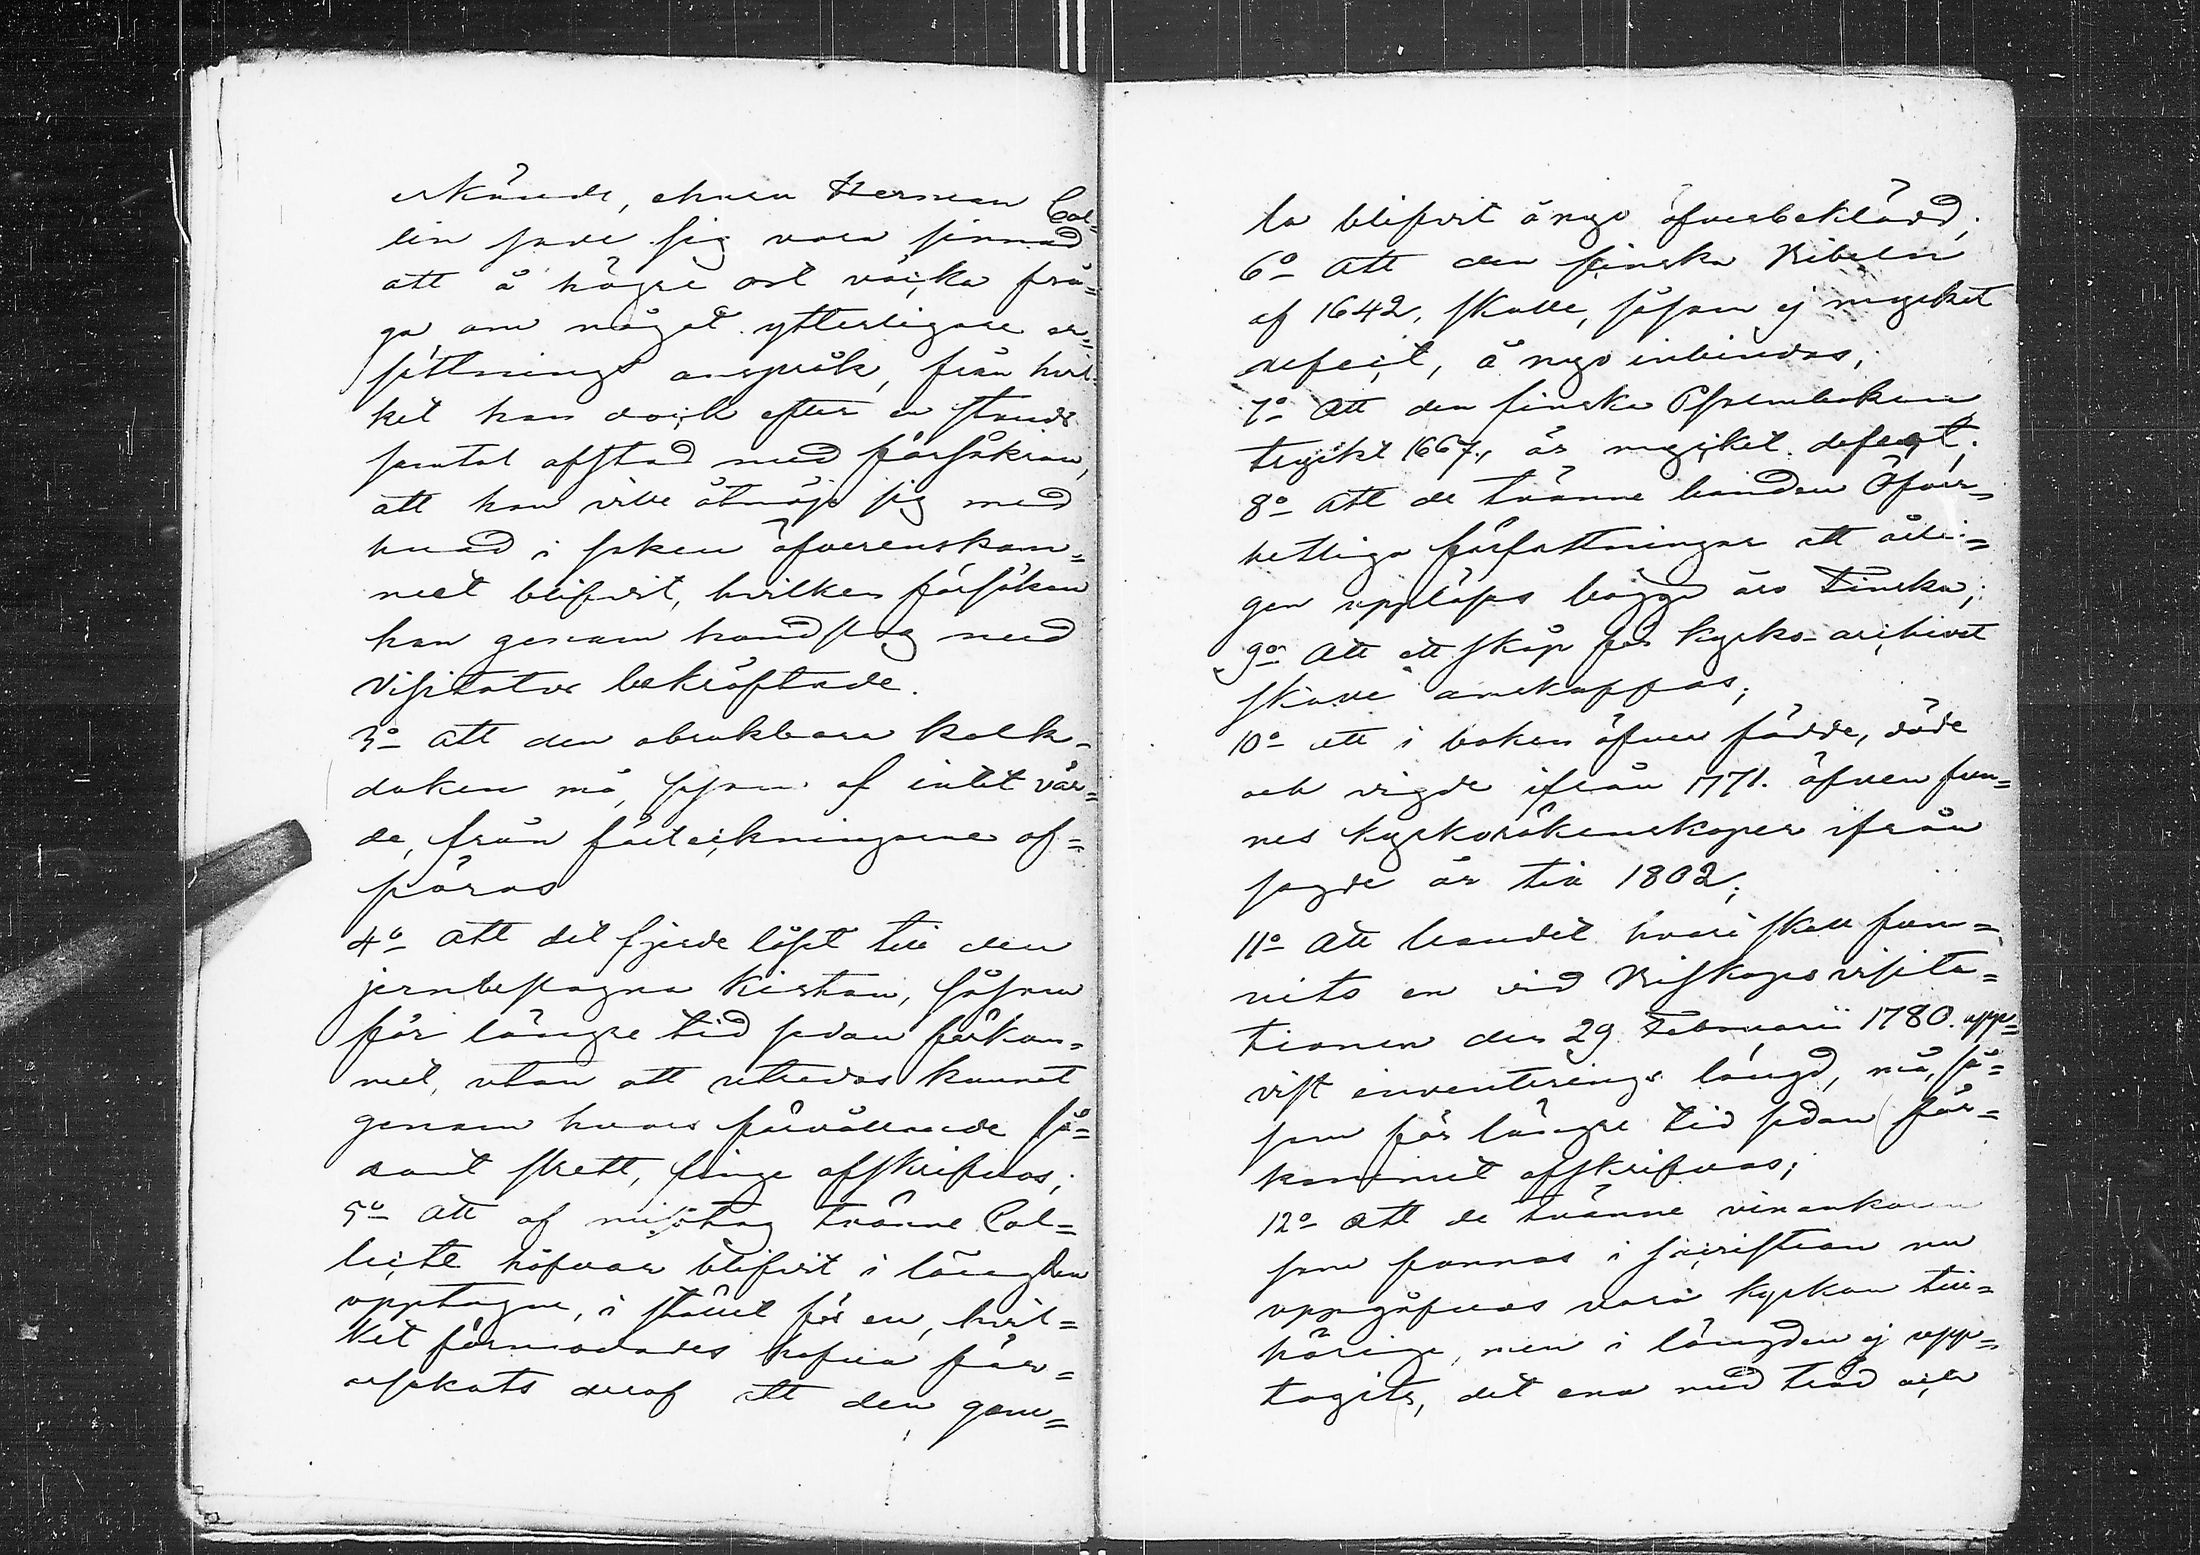 erkände, ehuru Herman Col=
lin sade sig vara sinnad
att å högre ort väcka frå=
ga om något ytterligare er=
sättnings anspråk, från hvil=
ket han dock efter en stunds
samtal afstod med försäkran,
att han ville åtnöja sig med
hvad i saken öfverenskom=
met blifvit, hvilken försäkran
han genom handslag med
Visitator bekräftade.
3o Att den obrukbara kalk=
duken må, såsom af intet vär=
de, från förteckningarne af=
föras
4o Att det fjerde låset till den
jernbeslagna kistan, såsom
för längre tid sedan förkom=
met, utan att utredas kunnat
genom hvars förvållande så=
dant skett, finge afskrifvas;
5o Att af misstag tvänne Col=
lecte håfvar blifvit i längden
upptagne, i stället för en, hvil=
ket förmodades hafva för=
orsakats deraf att den gam=
la blifvit å nyo öfverbeklädd;
6o Att den finska Bibeln
af 1642, skulle, såsom ej mycket
defect, å nyo inbindas;
7o Att den finska Psalmboken
tryckt 1667, är mycket defect;
8o Att de tvänne banden Öfver=
hetliga författningar att årli=
gen uppläsas bägge äro Finska;
9o Att ett skåp för kyrko-archivet
skulle anskaffas;
10o att i boken öfver födde, döde
och vigde ifrån 1771. äfven fun=
nes kyrkoräkenskaper ifrån
sagde år till 1802;
11o Att bandet hvari skall fun=
nits en vid Biskops visita=
tionen den 29 Februarii 1780. upp=
vist inventerings längd, må, så=
som för längre tid sedan för=
kommet afskrifvas;
12o Att de tvänne vinankaren
som funnos i sacristian nu
uppgåfvos vara kyrkan till=
hörige, men i längden ej upp=
tagits, det ena med träd och